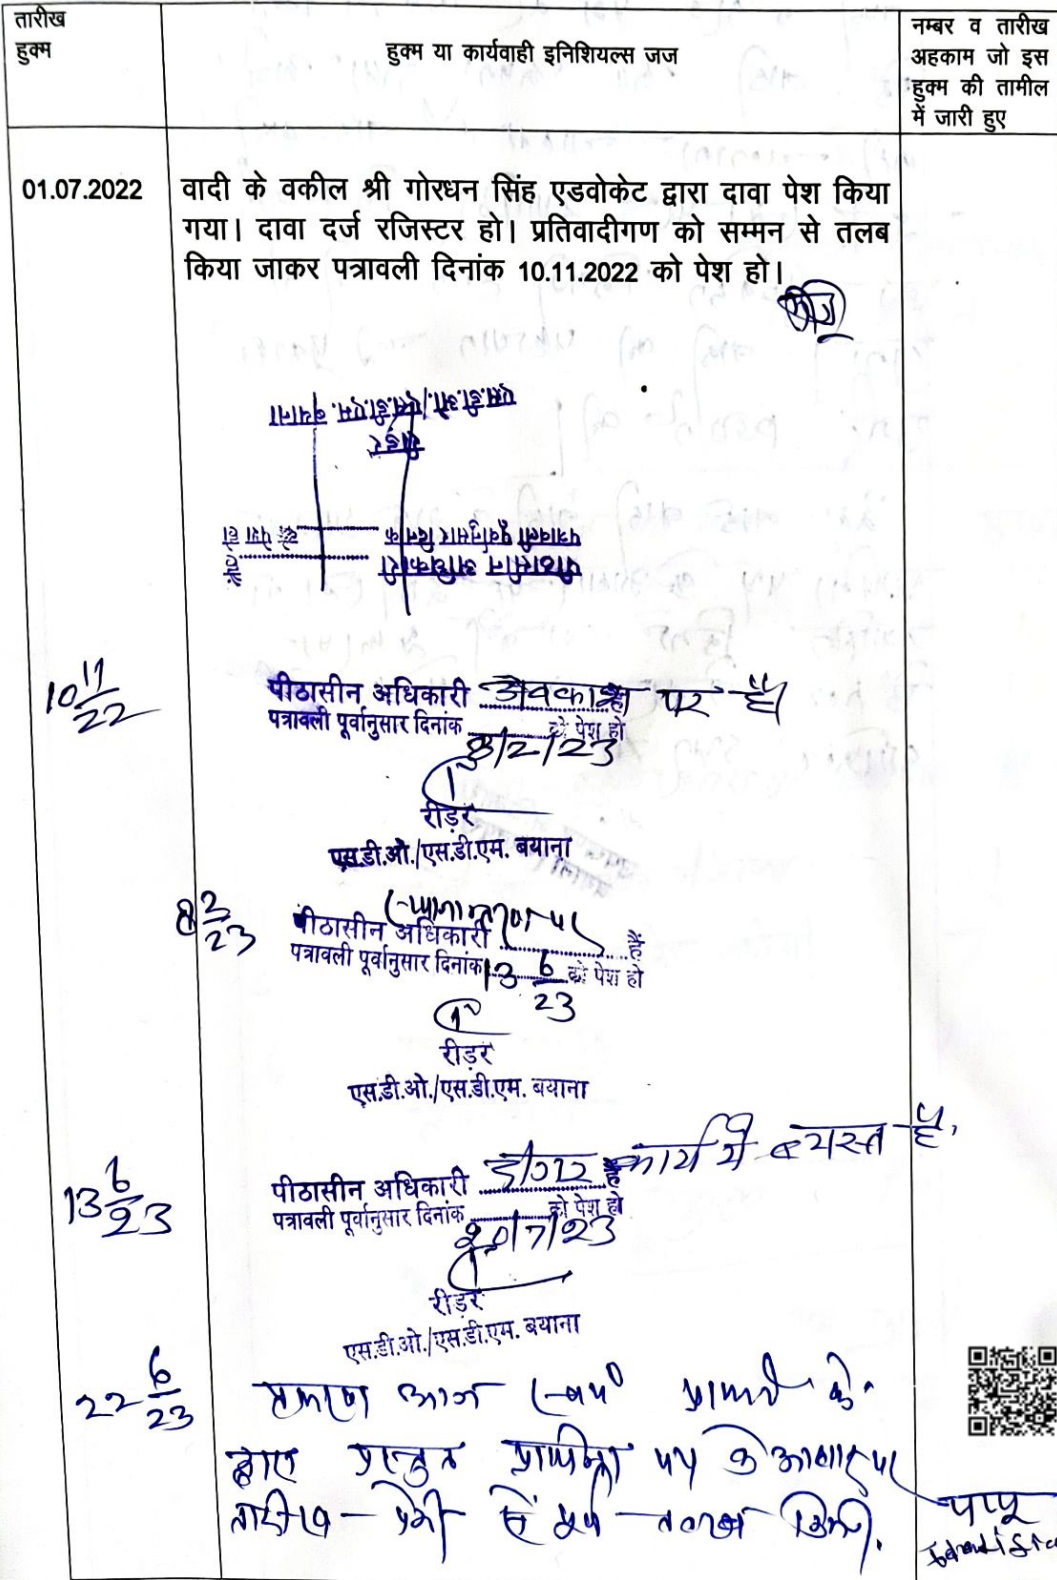 तारीख
हुक्म
हुक्म या कार्यवाही इनिशियल्स जज
नम्बर व तारीख
अहकाम जो इस
हुक्म की तामील
में जारी हुए
01.07.2022
वादी के वकील श्री गोरधन सिंह एडवोकेट द्वारा दावा पेश किया
गया। दावा दर्ज रजिस्टर हो। प्रतिवादीगण को सम्मन से तलब
किया जाकर पत्रावली दिनांक 10.11.2022 को पेश हो।
पीठासीन अधिकारी .................... हैं
पत्रावली पूर्वानुसार दिनांक .......... को पेश हो
रीडर
एस.डी.ओ./एस.डी.एम. बयाना
10 11/22
पीठासीन अधिकारी अवकाश पर हैं
पत्रावली पूर्वानुसार दिनांक 8/2/23 को पेश हो
रीडर
एस.डी.ओ./एस.डी.एम. बयाना
8 2/23
पीठासीन अधिकारी स्थानान्तरण पर हैं
पत्रावली पूर्वानुसार दिनांक 13 6/23 को पेश हो
रीडर
एस.डी.ओ./एस.डी.एम. बयाना
13 6/23
पीठासीन अधिकारी कार्य में व्यस्त हैं
पत्रावली पूर्वानुसार दिनांक 20/7/23 को पेश हो
रीडर
एस.डी.ओ./एस.डी.एम. बयाना
22 6/23
प्रकरण आज स्वयं प्रार्थी के
द्वारा प्रस्तुत प्रार्थना पत्र के आधार पर
तारीख पेशी से पूर्व तलब
पप्पू